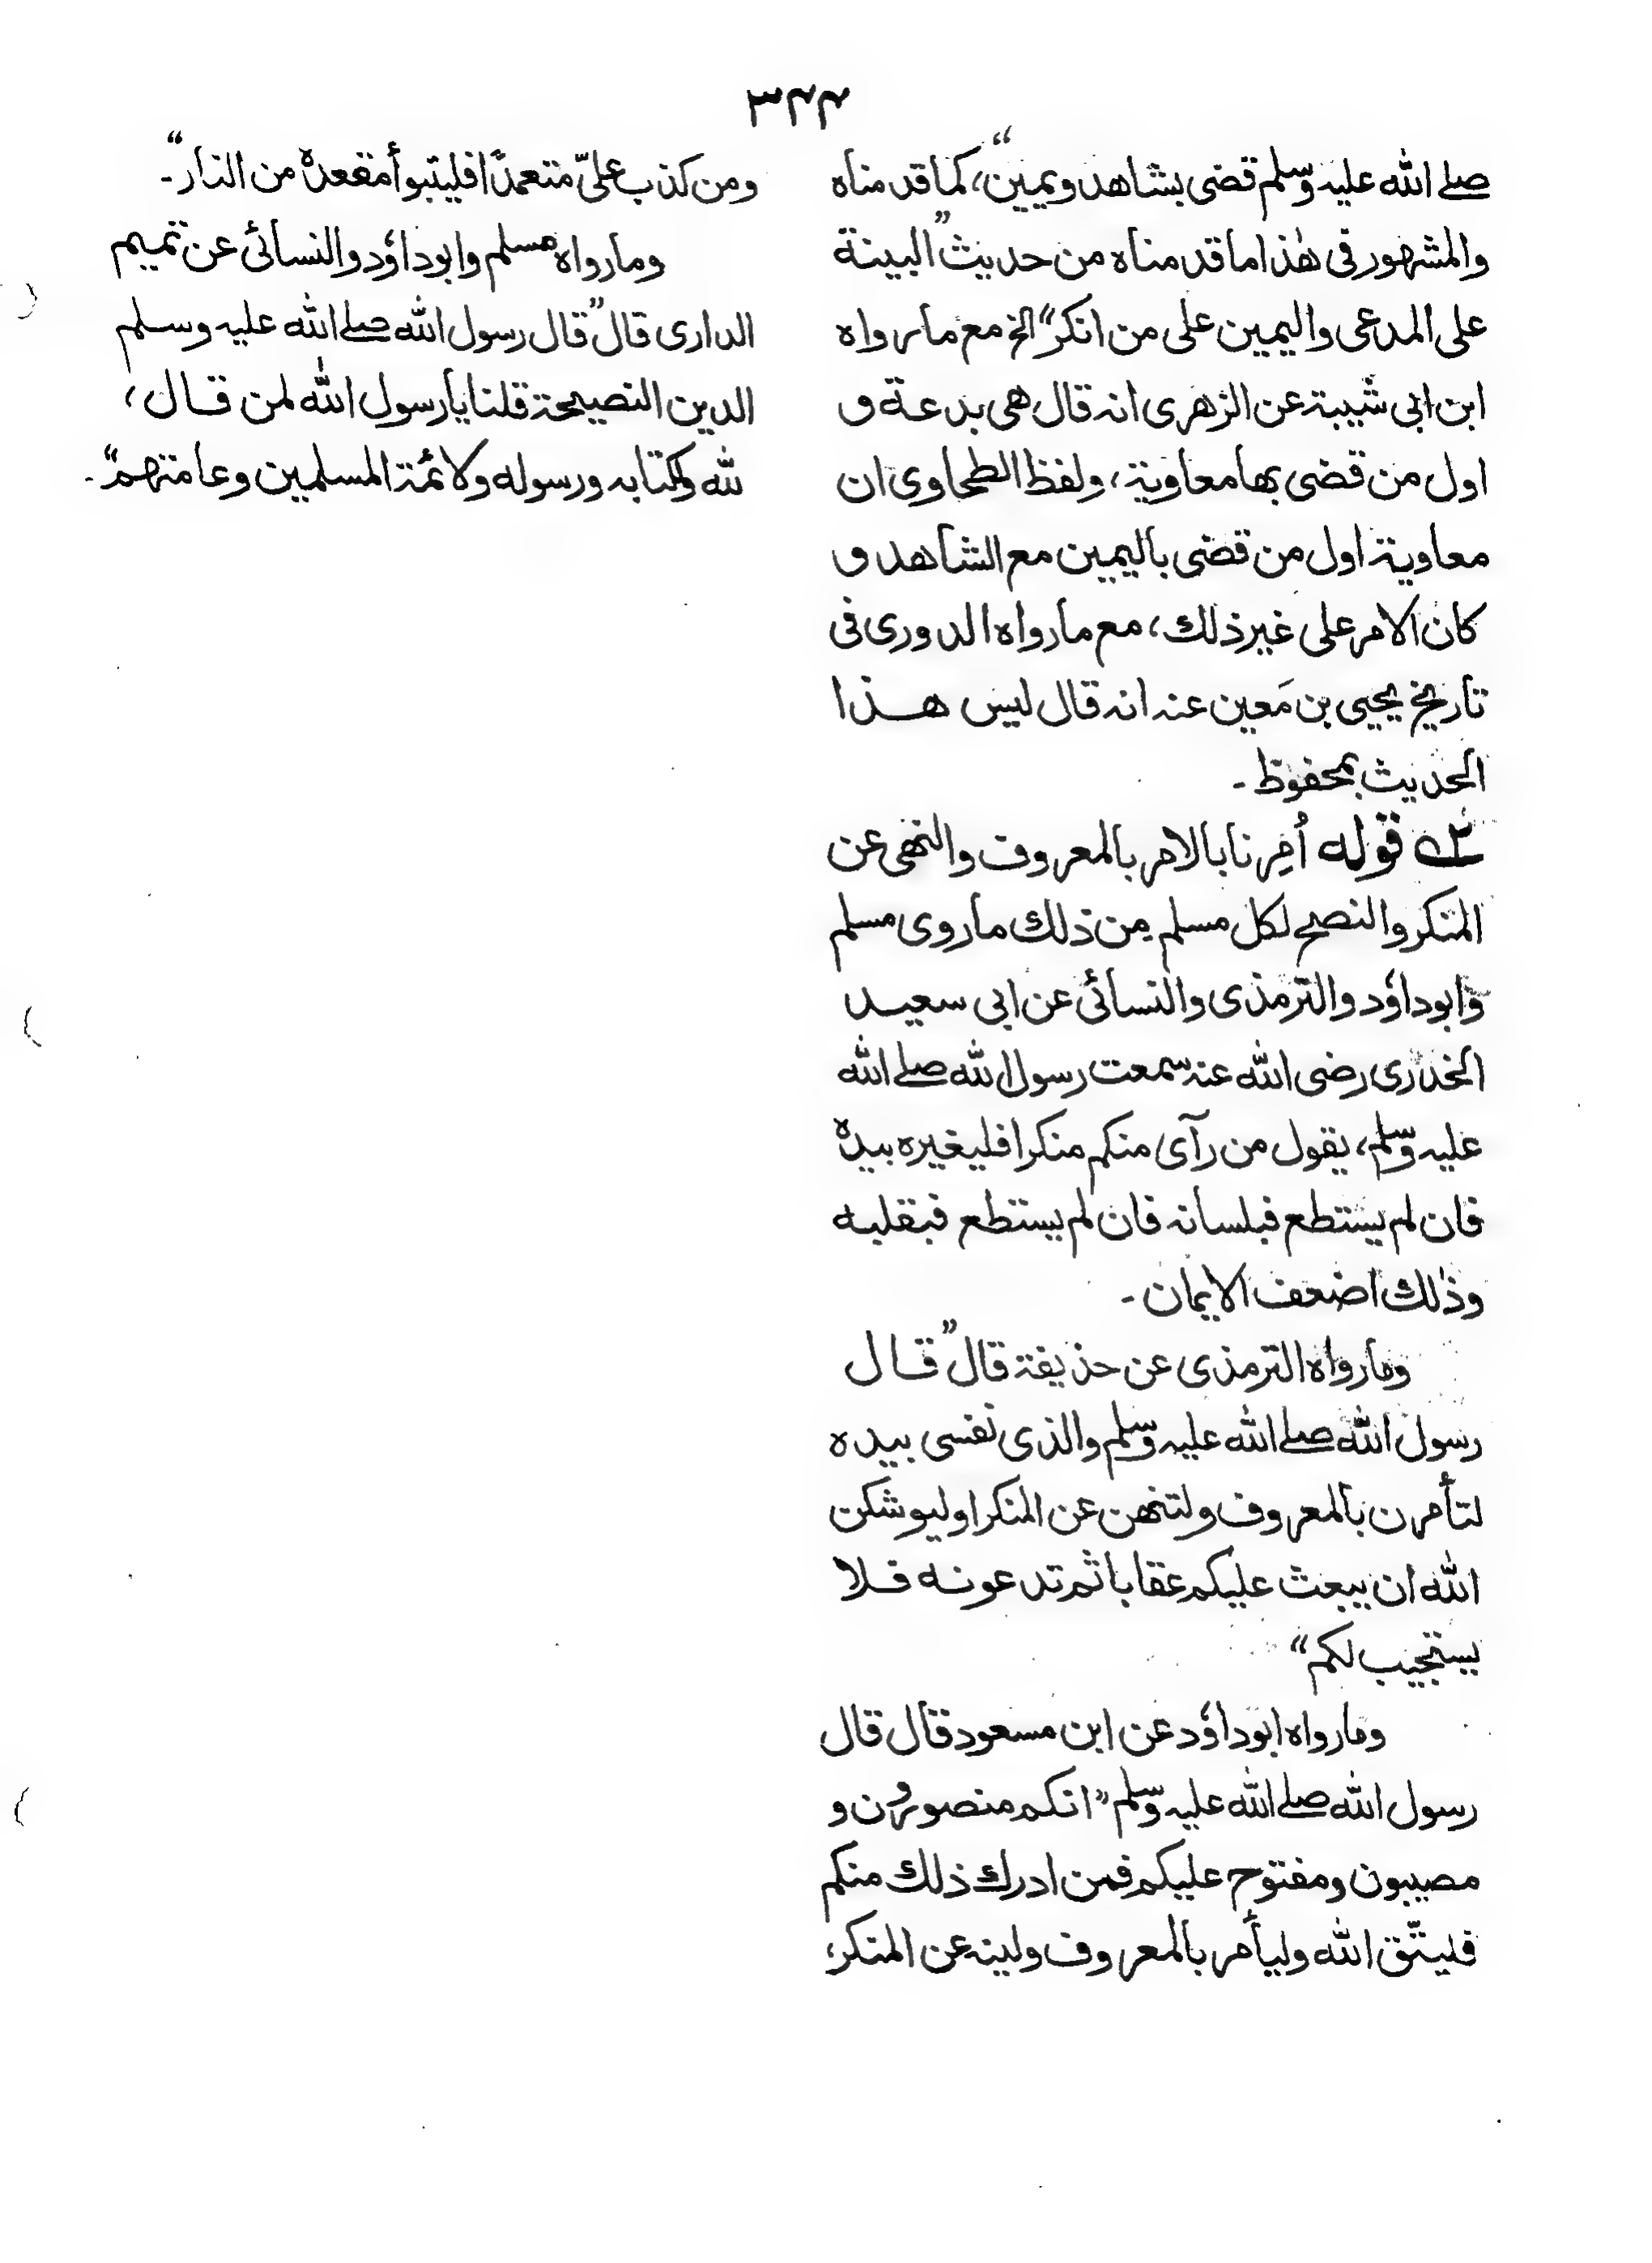 ۳۴۴
صلے الله علیہ وسلم قضی بشاهد ویمین“، کما قدمناه
والمشهور فی هٰذا ما قدمناه من حدیث ”البینة
علی المدعی والیمین علی من انکر“ الخ مع ما رواه
ابن ابی شیبة عن الزهری انه قال هی بدعة و
اول من قضی بها معاویة، ولفظ الطحاوی ان
معاویة اول من قضی بالیمین مع الشاهد و
کان الامر علی غیر ذلك، مع ما رواه الدوری فی
تاریخ یحیی بن مَعین عنه انه قال لیس هذا
الحدیث بمحفوظ -
قوله اُمِرنا بالامر بالمعروف والنهی عن
المنکر والنصح لکل مسلم مِن ذلك ما روی مسلم
وابوداوٗد والترمذی والنسائی عن ابی سعید
الخدری رضی الله عنه سمعت رسول الله صلے الله
علیہ وسلم، یقول من رآی منکم منکرا فلیغیره بیده
فان لم یستطع فبلسانه فان لم یستطع فبقلبه
وذٰلك اضعف الایمان -
وما رواه الترمذی عن حذیفة قال ”قال
رسول الله صلے الله علیہ وسلم والذی نفسی بیده
لتأمرن بالمعروف ولتنهن عن المنکر او لیوشکن
الله ان یبعث علیکم عقابا ثم تدعونه فلا
یستجیب لکم“
وما رواه ابوداوٗد عن ابن مسعود قال قال
رسول الله صلے الله علیہ وسلم ”انکم منصورون و
مصیبون ومفتوح علیکم فمن ادرك ذلك منکم
فلیتّق الله ولیأمر بالمعروف ولینه عن المنکر،
ومن کذب علیّ متعمدًا فلیتبوأ مقعده من النار“ -
وما رواه مسلم وابوداوٗد والنسائی عن تمیم
الداری قال ”قال رسول الله صلے الله علیه وسلم
الدین النصیحة قلنا یا رسول الله لمن قال،
لله ولکتابه ورسوله ولائمة المسلمین وعامتهم“ -